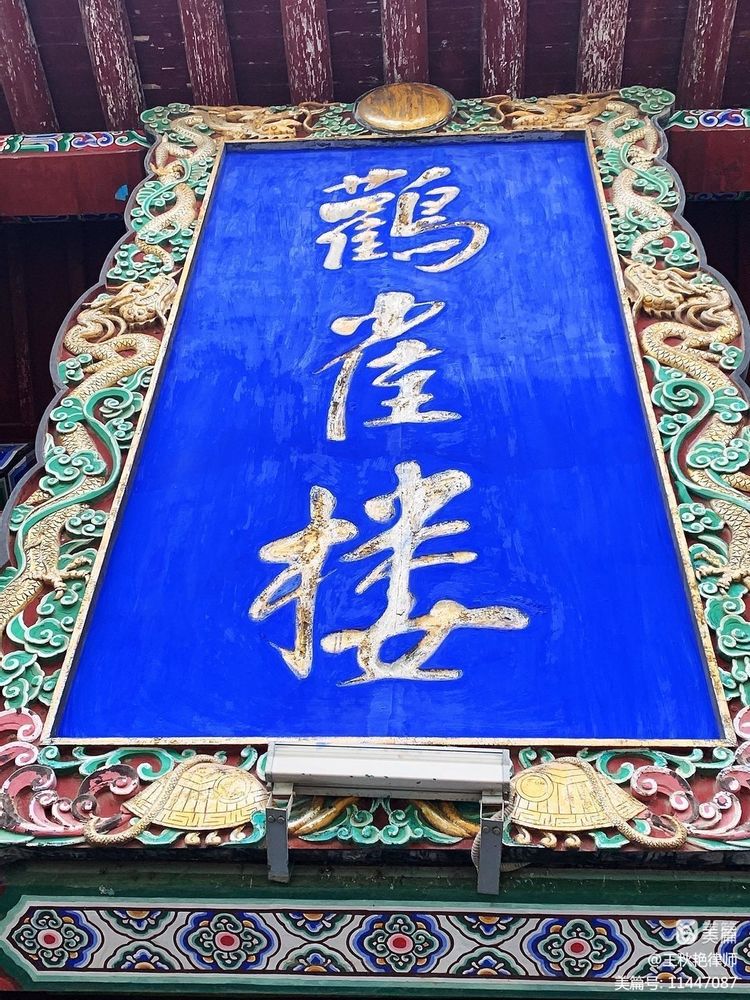 鸛雀楼
美篇
@王秋艳律师
美篇号: 11447087